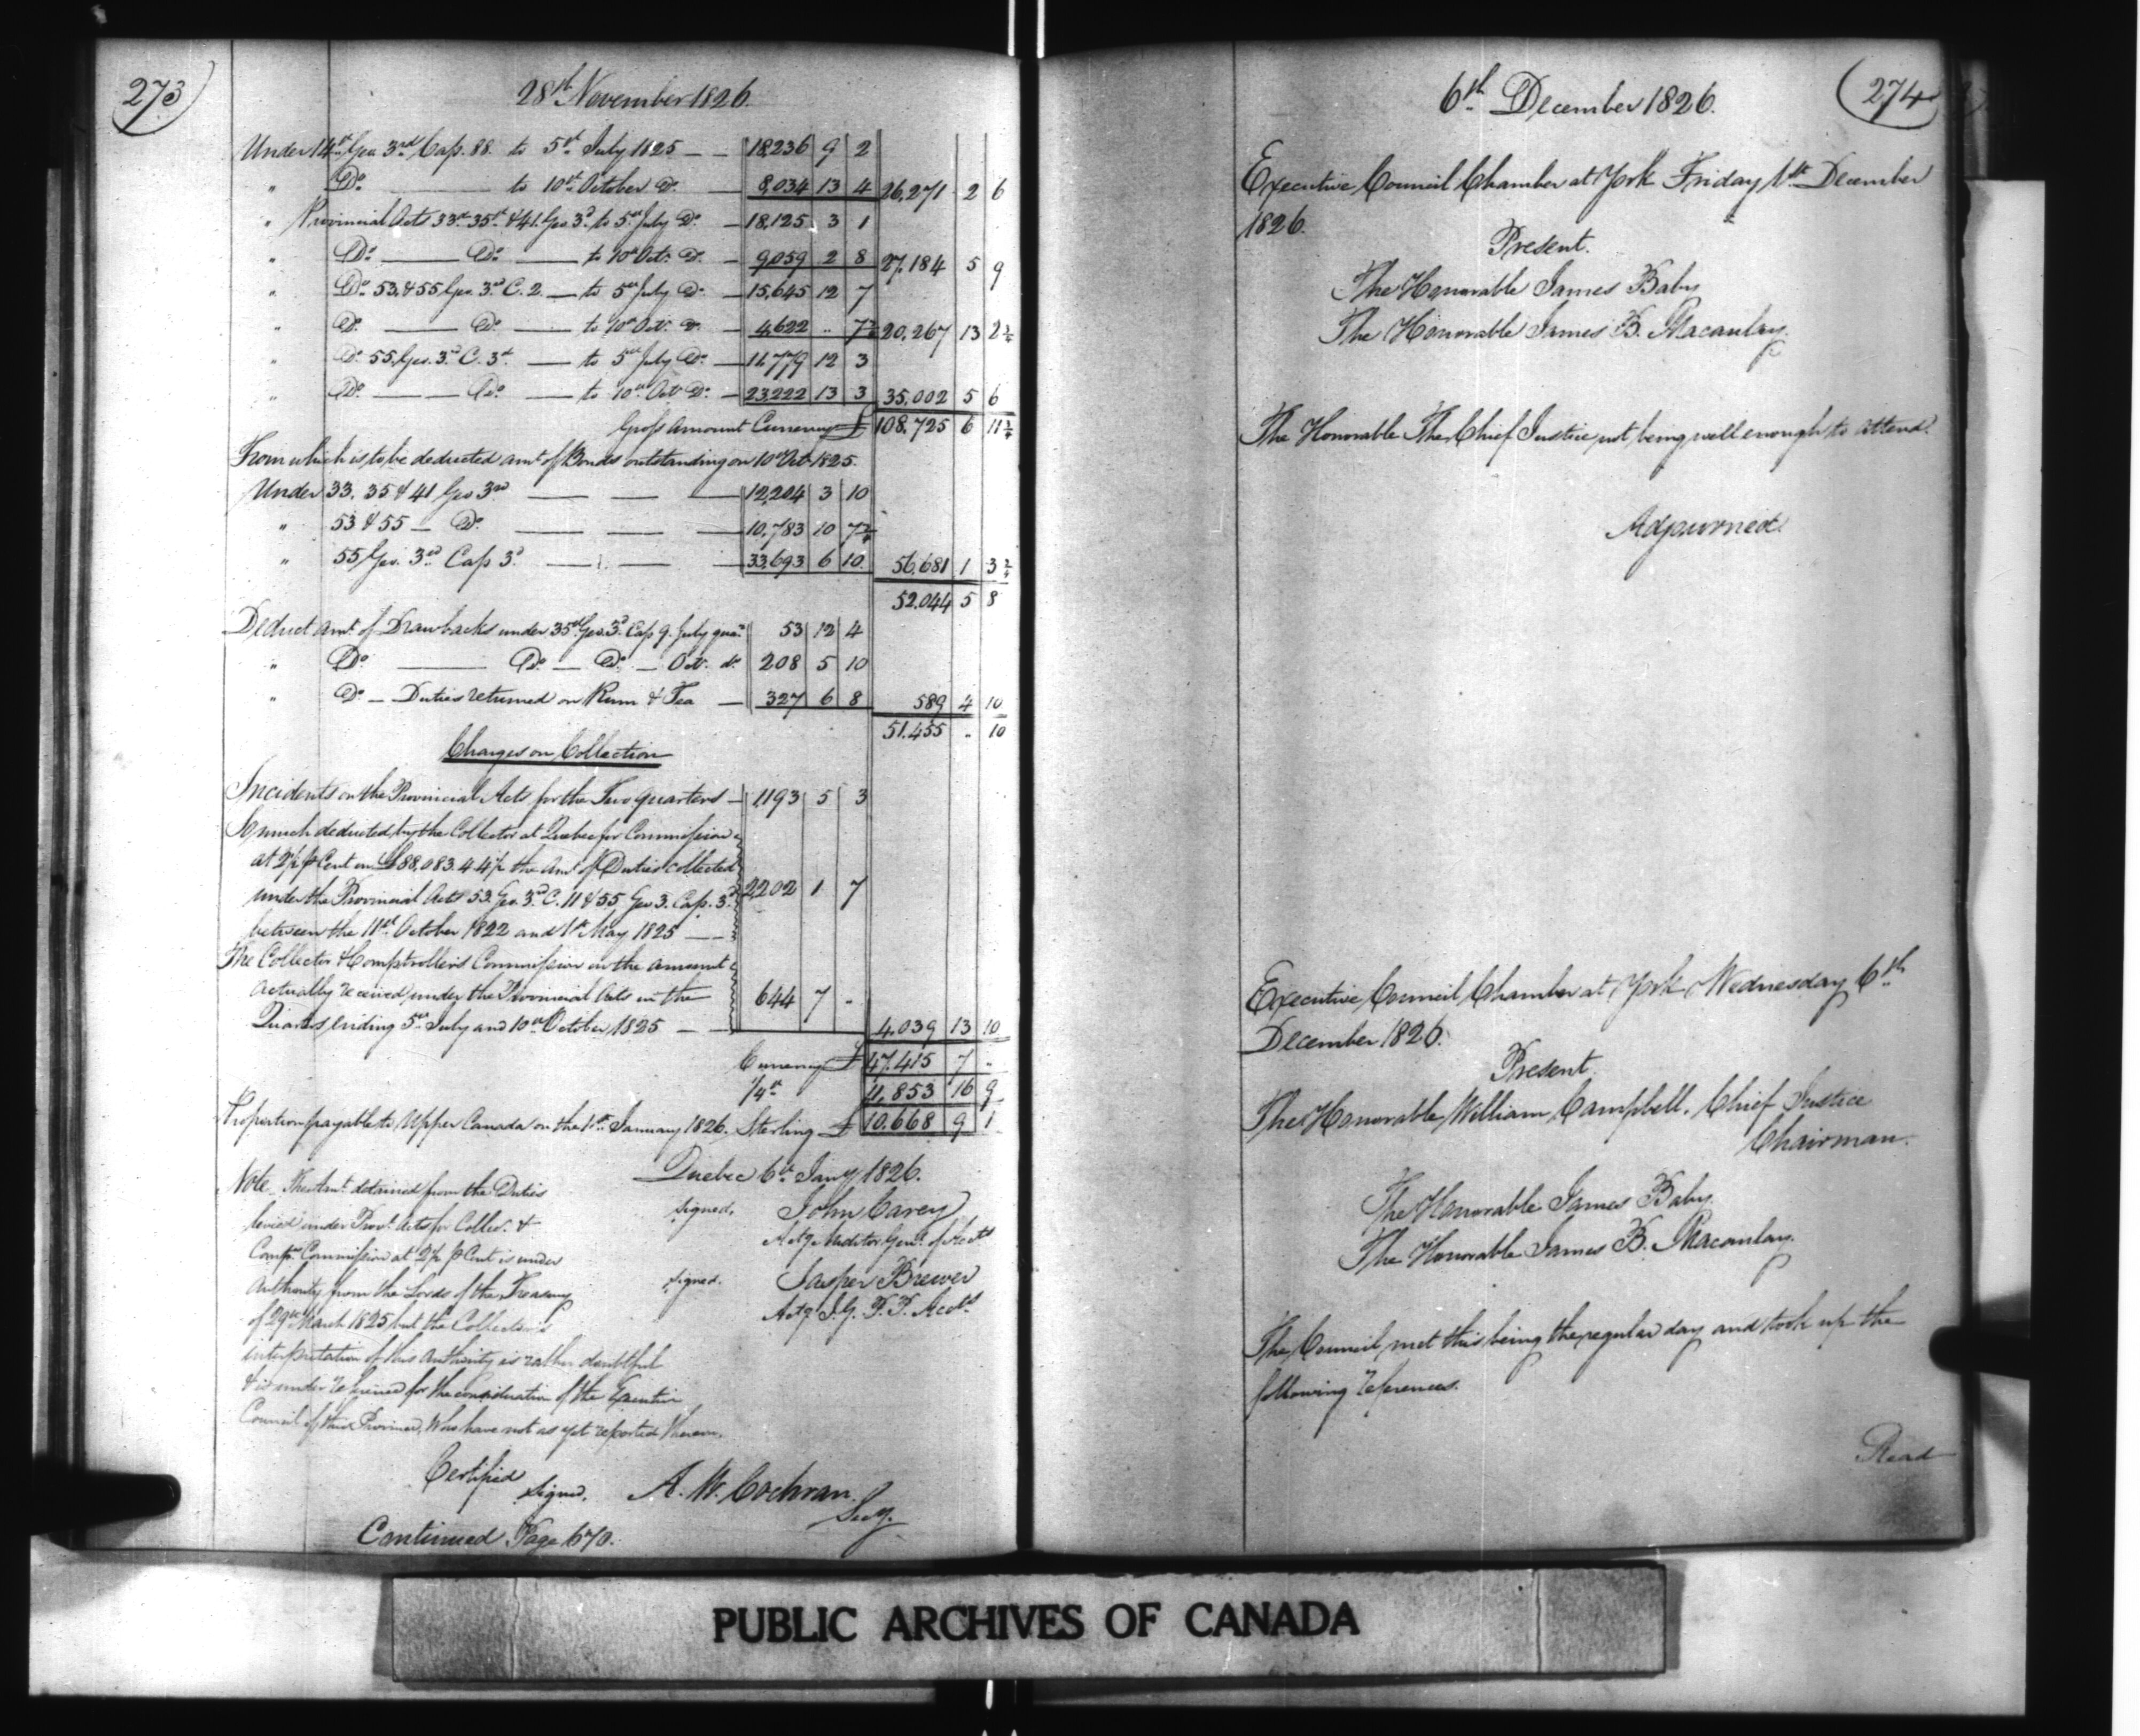 273
28th November 1826.
Under 14th Geo. 3rd Cap. 88. to 5th July 1825 — — 18,236 9 2
" Do. — to 10th October Do. — 8,034 13 4 26,271 2 6
" Provincial Acts 33rd 35th & 41. Geo 3d. to 5th July Do. — 18,125 3 1
" Do. — Do. — to 10th Octr. Do. — 9,059 2 8 27,184 5 9
" Do. 53, & 55 Geo. 3rd C. 2. — to 5th July Do. — 15,645 12 7
" Do. — Do. — to 10th Octr. Do. — 4,622 .. 7 2/4 20,267 13 2 2/4
" Do. 55, Geo. 3rd C. 3d. — to 5th July Do. — 11,779 12 3
" Do. — Do. — to 10th Octr. Do. — 23,222 13 3 35,002 5 6
Gross Amount Currency £ 108,725 6 11 2/4
From which is to be deducted amt. of Bonds outstanding on 10th Octr. 1825.
Under 33. 35 & 41 Geo 3rd — — — 12,204 3 10
" 53 & 55 — Do. — — — 10,783 10 7 2/4
" 55 Geo. 3rd Cap 3d. — — — 33,693 6 10 56,681 1 3 2/4
52,044 5 8
Deduct amt. of Drawbacks under 35th Geo. 3d. Cap 9. July quar. 53 12 4
" Do. — Do. — Do. — Octr. do. 208 5 10
" Do. — Duties returned on Rum & Tea — 327 6 8 589 4 10
51,455 .. 10
Charges on Collection
Incidents on the Provincial Acts for the Two quarters — 1,193 5 3
So much deducted by the Collector at Quebec for Commission
at 2 1/2 p Cent on £88,083.4.4 1/2 the Amt. of Duties collected
under the Provincial Acts 53. Geo. 3rd. C. 11 & 55 Geo 3. Cap. 3d. 2,202 1 7
between the 11th October 1822 and 1st May 1825 —
The Collector & Comptroller's Commission on the amount
actually received under the Provincial Acts in the 644 7 ..
Quarters ending 5th July and 10th October 1825 — — 4,039 13 10
Currency £ 47,415 7 ..
1/4th 11,853 16 9
Proportion payable to Upper Canada on the 1st January 1826. Sterling £ 10,668 9 1
Quebec 6th Jany 1826.
Note. The Amt. detained from the Duties
levied under Provl. Acts for Collrs. &
Compts. Commission at 2 1/2 p Cent is under
Authority from the Lords of the Treasury
of 29th March 1825 but the Collector's
interpretation of this Authority is rather doubtful
& is under reference for the consideration of the Executive
Council of this Province, Who have not as yet reported thereon.
signed. John Carey
Actg Auditor Genl. of Accts
signed. Jasper Brewer
Actg I. G. P. P. Accts
Certified
signed. A. W. Cochran.
Secy.
Continued Page 670.
274
6th December 1826.
Executive Council Chamber at York Friday 1st December
1826.
Present.
The Honorable James Baby
The Honorable James B. Macaulay.
The Honorable The Chief Justice not being well enough to attend.
Adjourned.
Executive Council Chamber at York Wednesday 6th
December 1826.
Present.
The Honorable William Campbell, Chief Justice
Chairman.
The Honorable James Baby.
The Honorable James B. Macaulay.
The Council met this being the regular day and took up the
following references.
Read
PUBLIC ARCHIVES OF CANADA